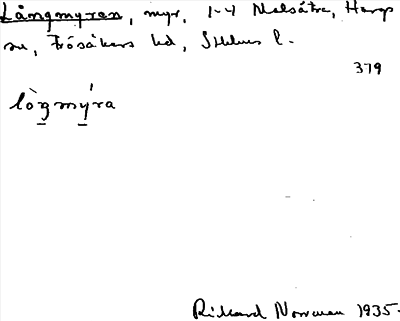 Långmyren, myr, 1-4 Melsätra, Harg
sn, Frösåkers hd, Sthlms l.
379
lòngmýra
Rickard Norrman 1935.